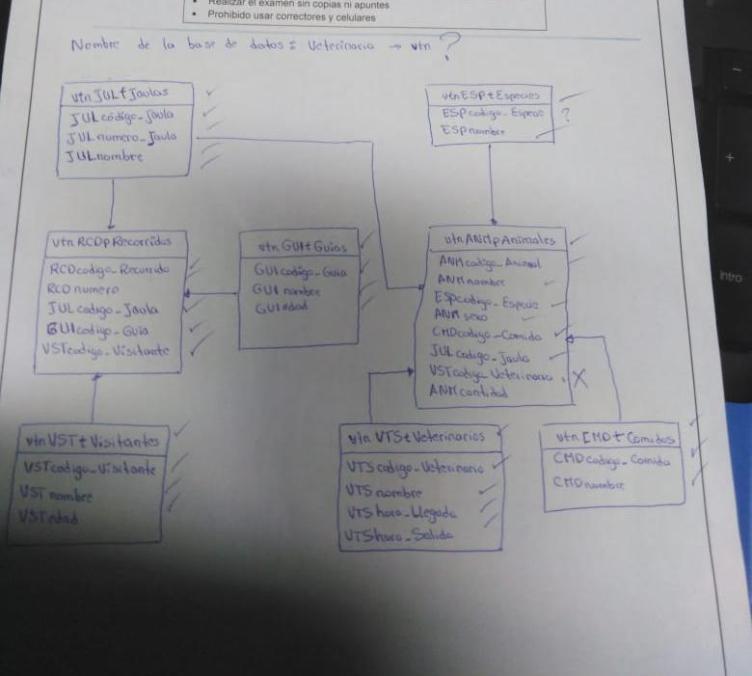 Realizar el examen sin copias ni apuntes
Prohibido usar correctores y celulares
Nombre de la base de datos: Veterinaria → vtn ?
vtnJULtJaulas
JULcódigo_Jaula
JULnumero_Jaula
JULnombre
vtnESPtEspecies
ESPcodigo_Especie ?
ESPnombre
vtnRCDpRecorridos
RCDcodigo_Recorrido
RCDnumero
JULcodigo_Jaula
GUIcodigo_Guia
VSTcodigo_Visitante
vtnGUItGuias
GUIcodigo_Guia
GUInombre
GUIedad
vtnANMpAnimales
ANMcodigo_Animal
ANMnombre
ESPcodigo_Especie
ANMsexo
CMDcodigo_Comida
JULcodigo_Jaula
VSTcodigo_Veterinario X
ANMcantidad
vtnVSTtVisitantes
VSTcodigo_Visitante
VSTnombre
VSTedad
vtnVTStVeterinarios
VTScodigo_Veterinario
VTSnombre
VTShora_Llegada
VTShora_Salida
vtnCMDtComidas
CMDcodigo_Comida
CMDnombre
intro